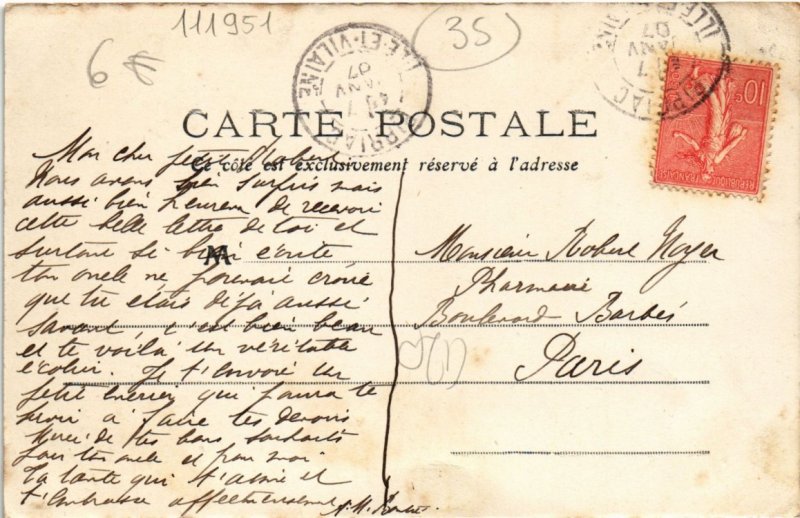 111951
6
35
ILLE-ET-VILAINE
7
JANV
07
ILLE-ET-VILAINE
7
JANV
07
10c
RÉPUBLIQUE FRANÇAISE
CARTE POSTALE
Ce côté est exclusivement réservé à l'adresse
Mon cher petit Robert
Nous avons bien surpris mais
aussi bien heureux de recevoir
cette belle lettre de toi et
surtout si bien écrite
ton oncle ne pouvait croire
que tu étais déjà aussi
savant, c'est bien beau
et te voilà un véritable
écolier. Je t'envoie un
petit encrier qui pourra te
servir à faire tes devoirs
Merci de tes bons souhaits
pour ton oncle et pour moi
Ta tante qui t'aime et
t'embrasse affectueusement
M
Monsieur Robert Noyer
Pharmacie
Boulevard Barbès
Paris